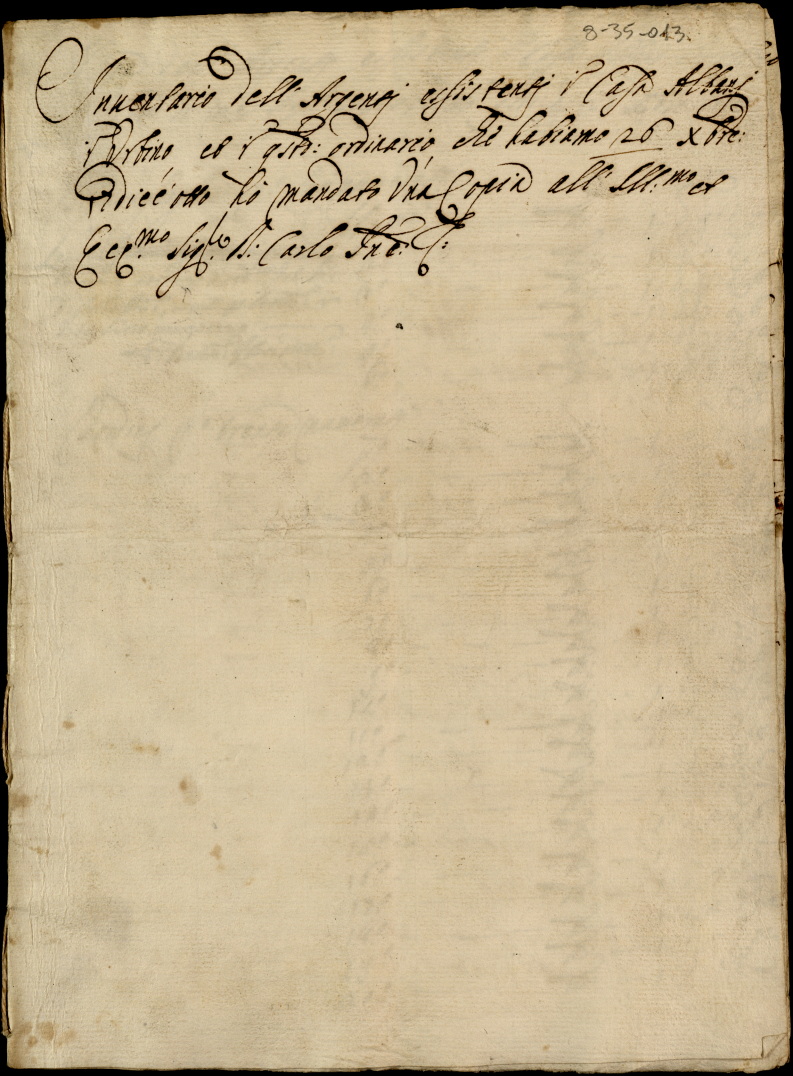 8-35-013.
Inventario dell' Argentj essistentj i' Casa Albanj
i' Urbino, et i' qsto: ordinario, che habiamo 26 Xbre:
dicc'otto hò mandato Una Copia all' Ill:mo et
Ecc:mo Sig:re D: Carlo